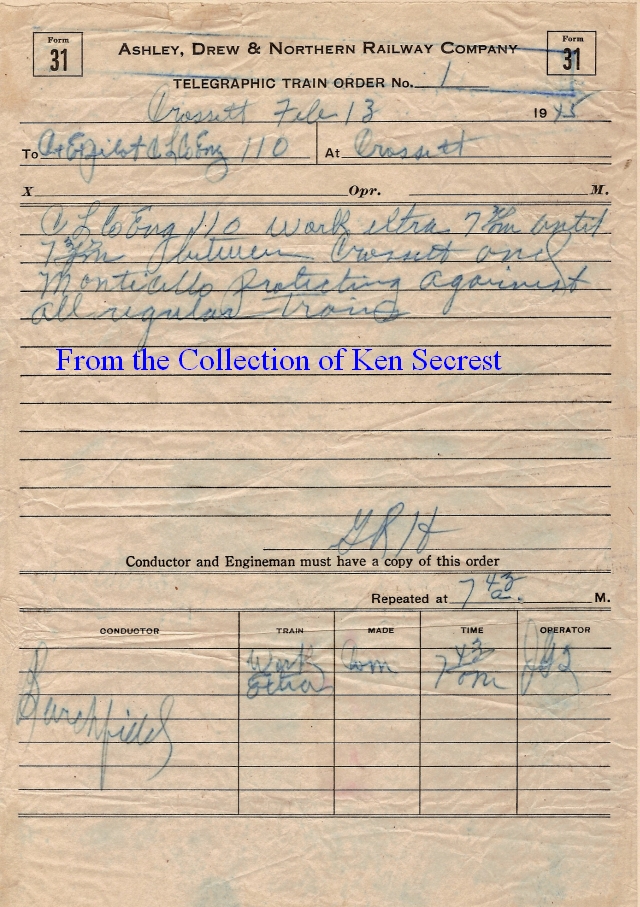 Form 31
ASHLEY, DREW & NORTHERN RAILWAY COMPANY
Form 31
TELEGRAPHIC TRAIN ORDER No. 1
Crossett Feb 13 1945
To C+E pilot C L Co Eng 110 At Crossett
X Opr. M.
C L Co Eng 110 work extra 7 until
7 between Crossett and
Monticello protecting against
all regular trains
From the Collection of Ken Secrest
G R H
Conductor and Engineman must have a copy of this order
Repeated at 7 43 a. M.
CONDUCTOR TRAIN MADE TIME OPERATOR
Work Com 7 43
Extra am